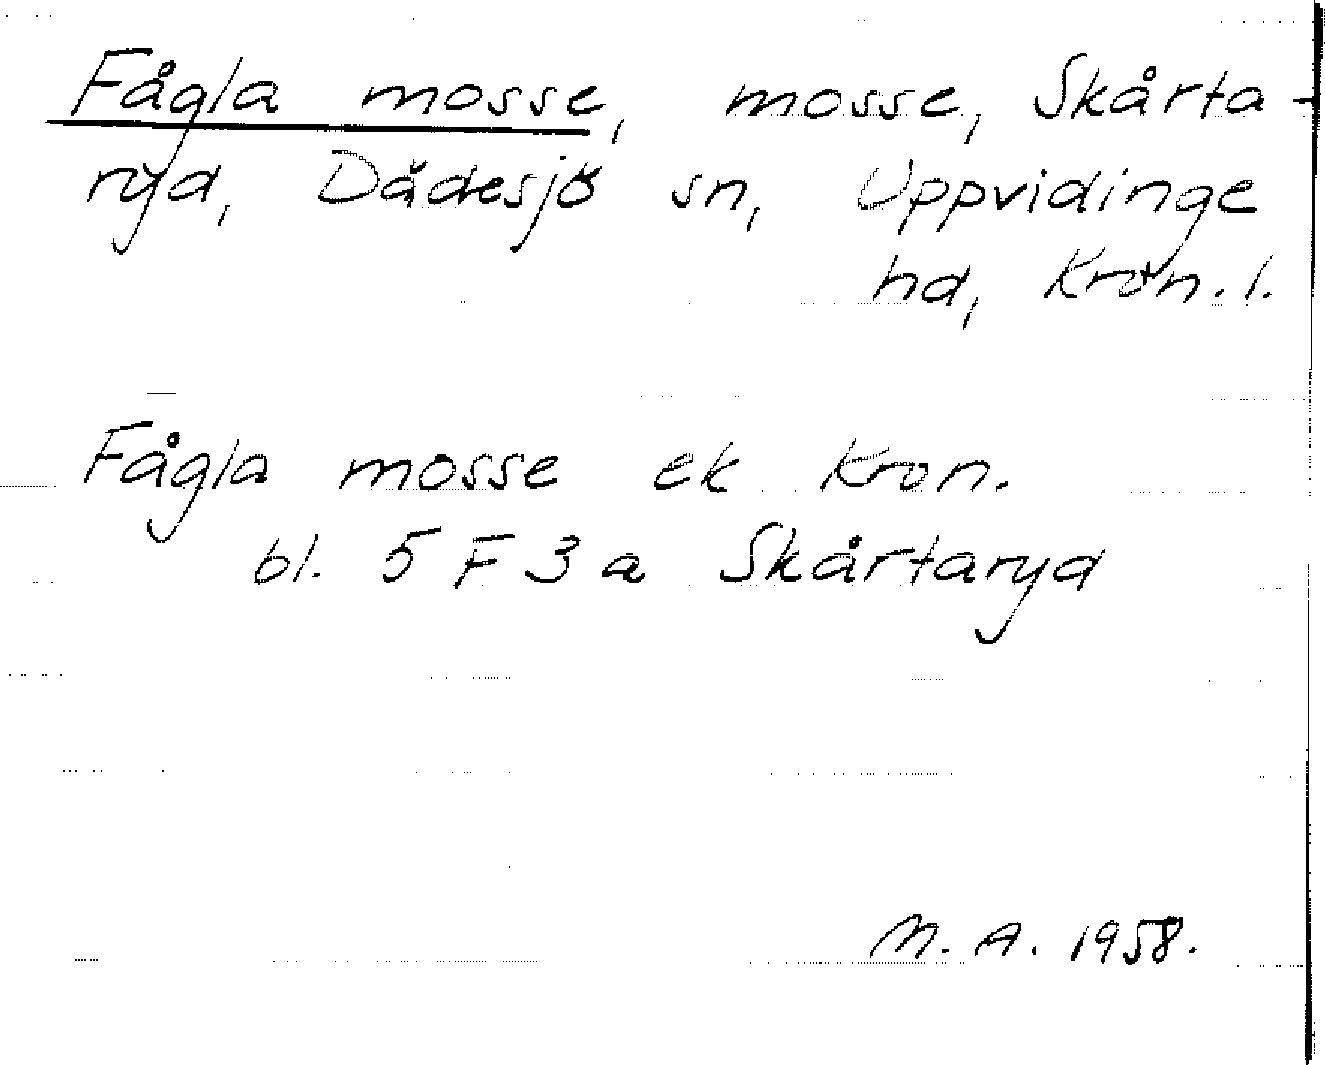 Fågla mosse, mosse, Skårta-
ryd, Dädesjö sn, Uppvidinge
hd, Kron. l.
Fågla mosse ek Kron.
bl. 5 F 3 a Skårtaryd
M. A. 1958.